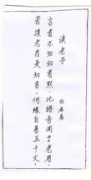 讀老子
白居易
言者不如知者默，此語吾聞於老君。
若道老君是知者，何緣自著五千文。